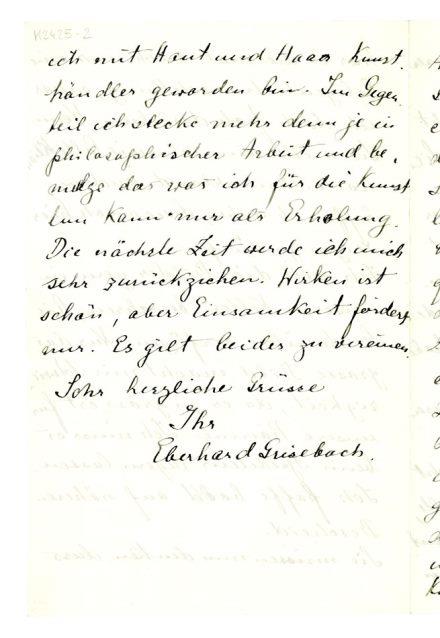 H2425-2
ich mit Haut und Haar Kunst.
händler geworden bin. Im Gegen
teil ich stecke mehr denn je in
philosophischer Arbeit und be,
nutze das was ich für die Kunst
tun kann nur als Erholung.
Die nächste Zeit werde ich mich
sehr zurückziehen. Wirken ist
schön, aber Einsamkeit fördert
nur. Es gilt beides zu vereinen.
Sehr herzliche Grüsse
Ihr
Eberhard Grisebach.